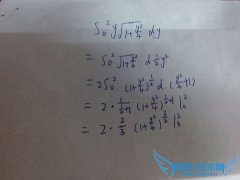 ∫₀² y√(1+y²/4) dy
= ∫₀² √(1+y²/4) d ½y²
= 2∫₀² (1+y²/4)^½ d(y²/4+1)
= 2·1/(½+1) (1+y²/4)^(½+1) |₀²
= 2·2/3 (1+y²/4)^(3/2) |₀²